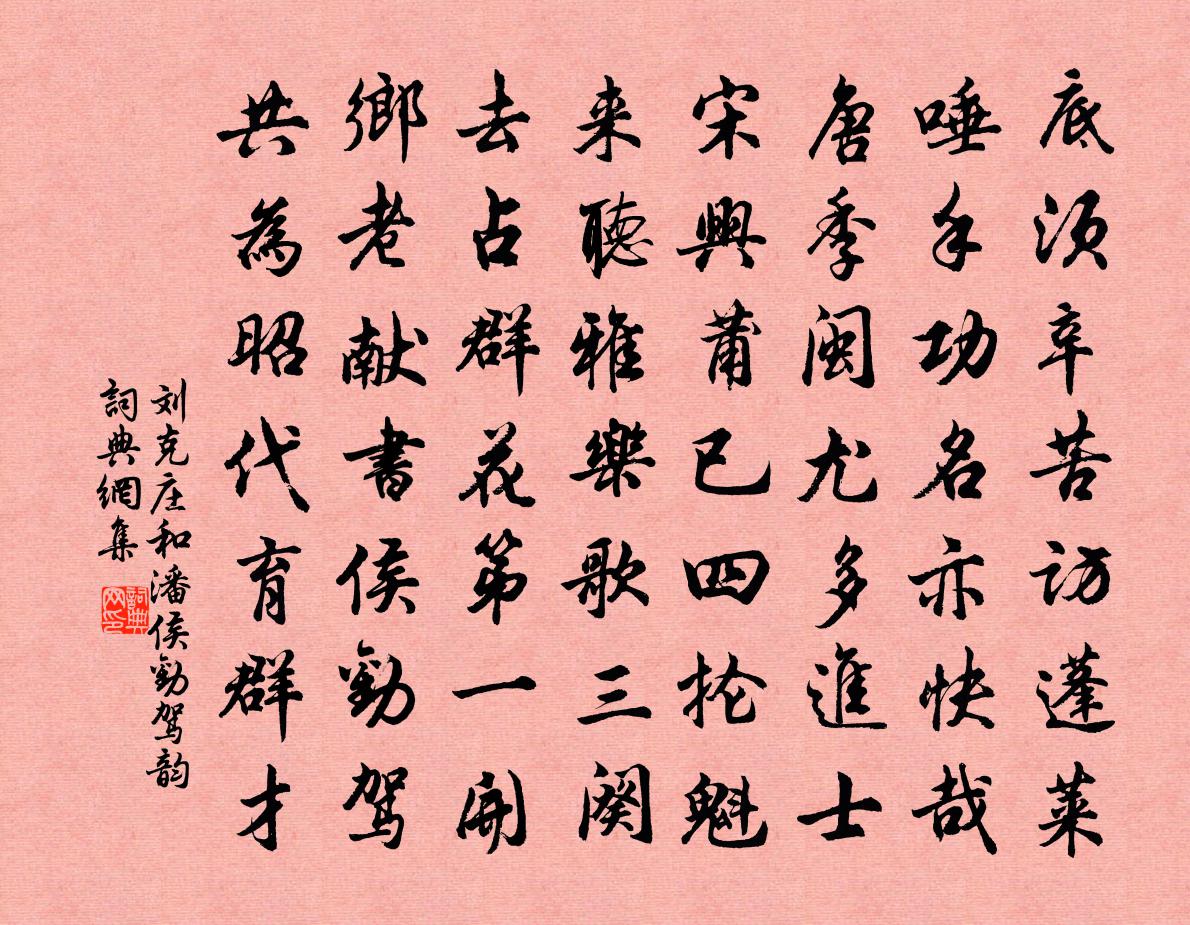 底须辛苦访蓬莱
唾手功名亦快哉
唐季闽尤多進士
宋興莆已四抡魁
来聽雅樂歌三闋
去占群花第一開
鄉老献書侯勸驾
共為昭代育群才
刘克庄和潘侯勸驾韵
詞典網集
詞典网印